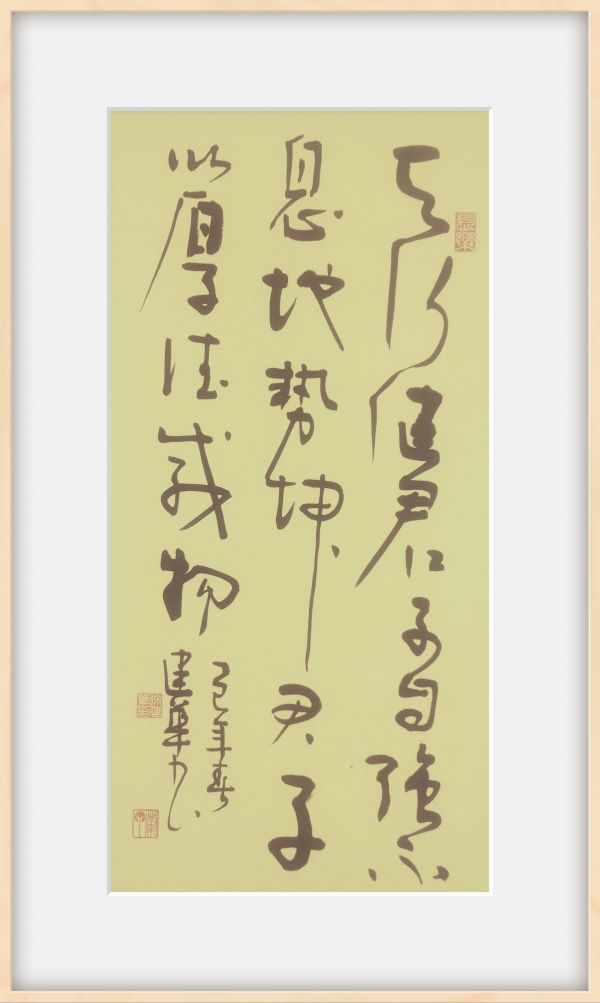 天行健君子自强不
息地势坤君子
以厚德载物
年春
建華
長樂